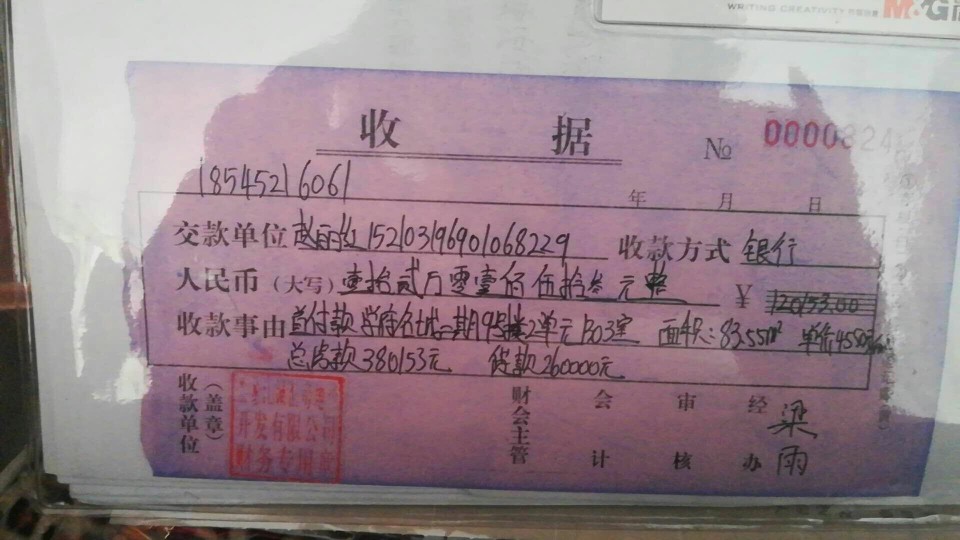 WRITING CREATIVITY M&G
收 据 № 0000824
18545216061
年 月 日
交款单位 赵丽红152103196901068229 收款方式 银行
人民币(大写) 壹拾贰万零壹佰伍拾叁元整 ¥ 120153.00
收款事由 首付款 学府名城二期9号楼2单元1303室 面积:83.55m² 单价4550元/
总房款380153元 贷款260000元
收款单位(盖章) 开发有限公司 财务专用章 财会主管 会计 审核 经办 梁雨